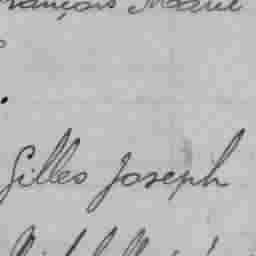 François Marie
Gilles Joseph